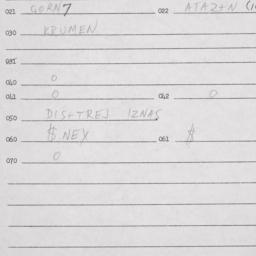 021 GORN7 022 ATAZ+N
030 KRUMEN
031
040 0
041 0 042 0
050 DIS+TREJ IZNAS
060 $.NEX 061 $
070 0